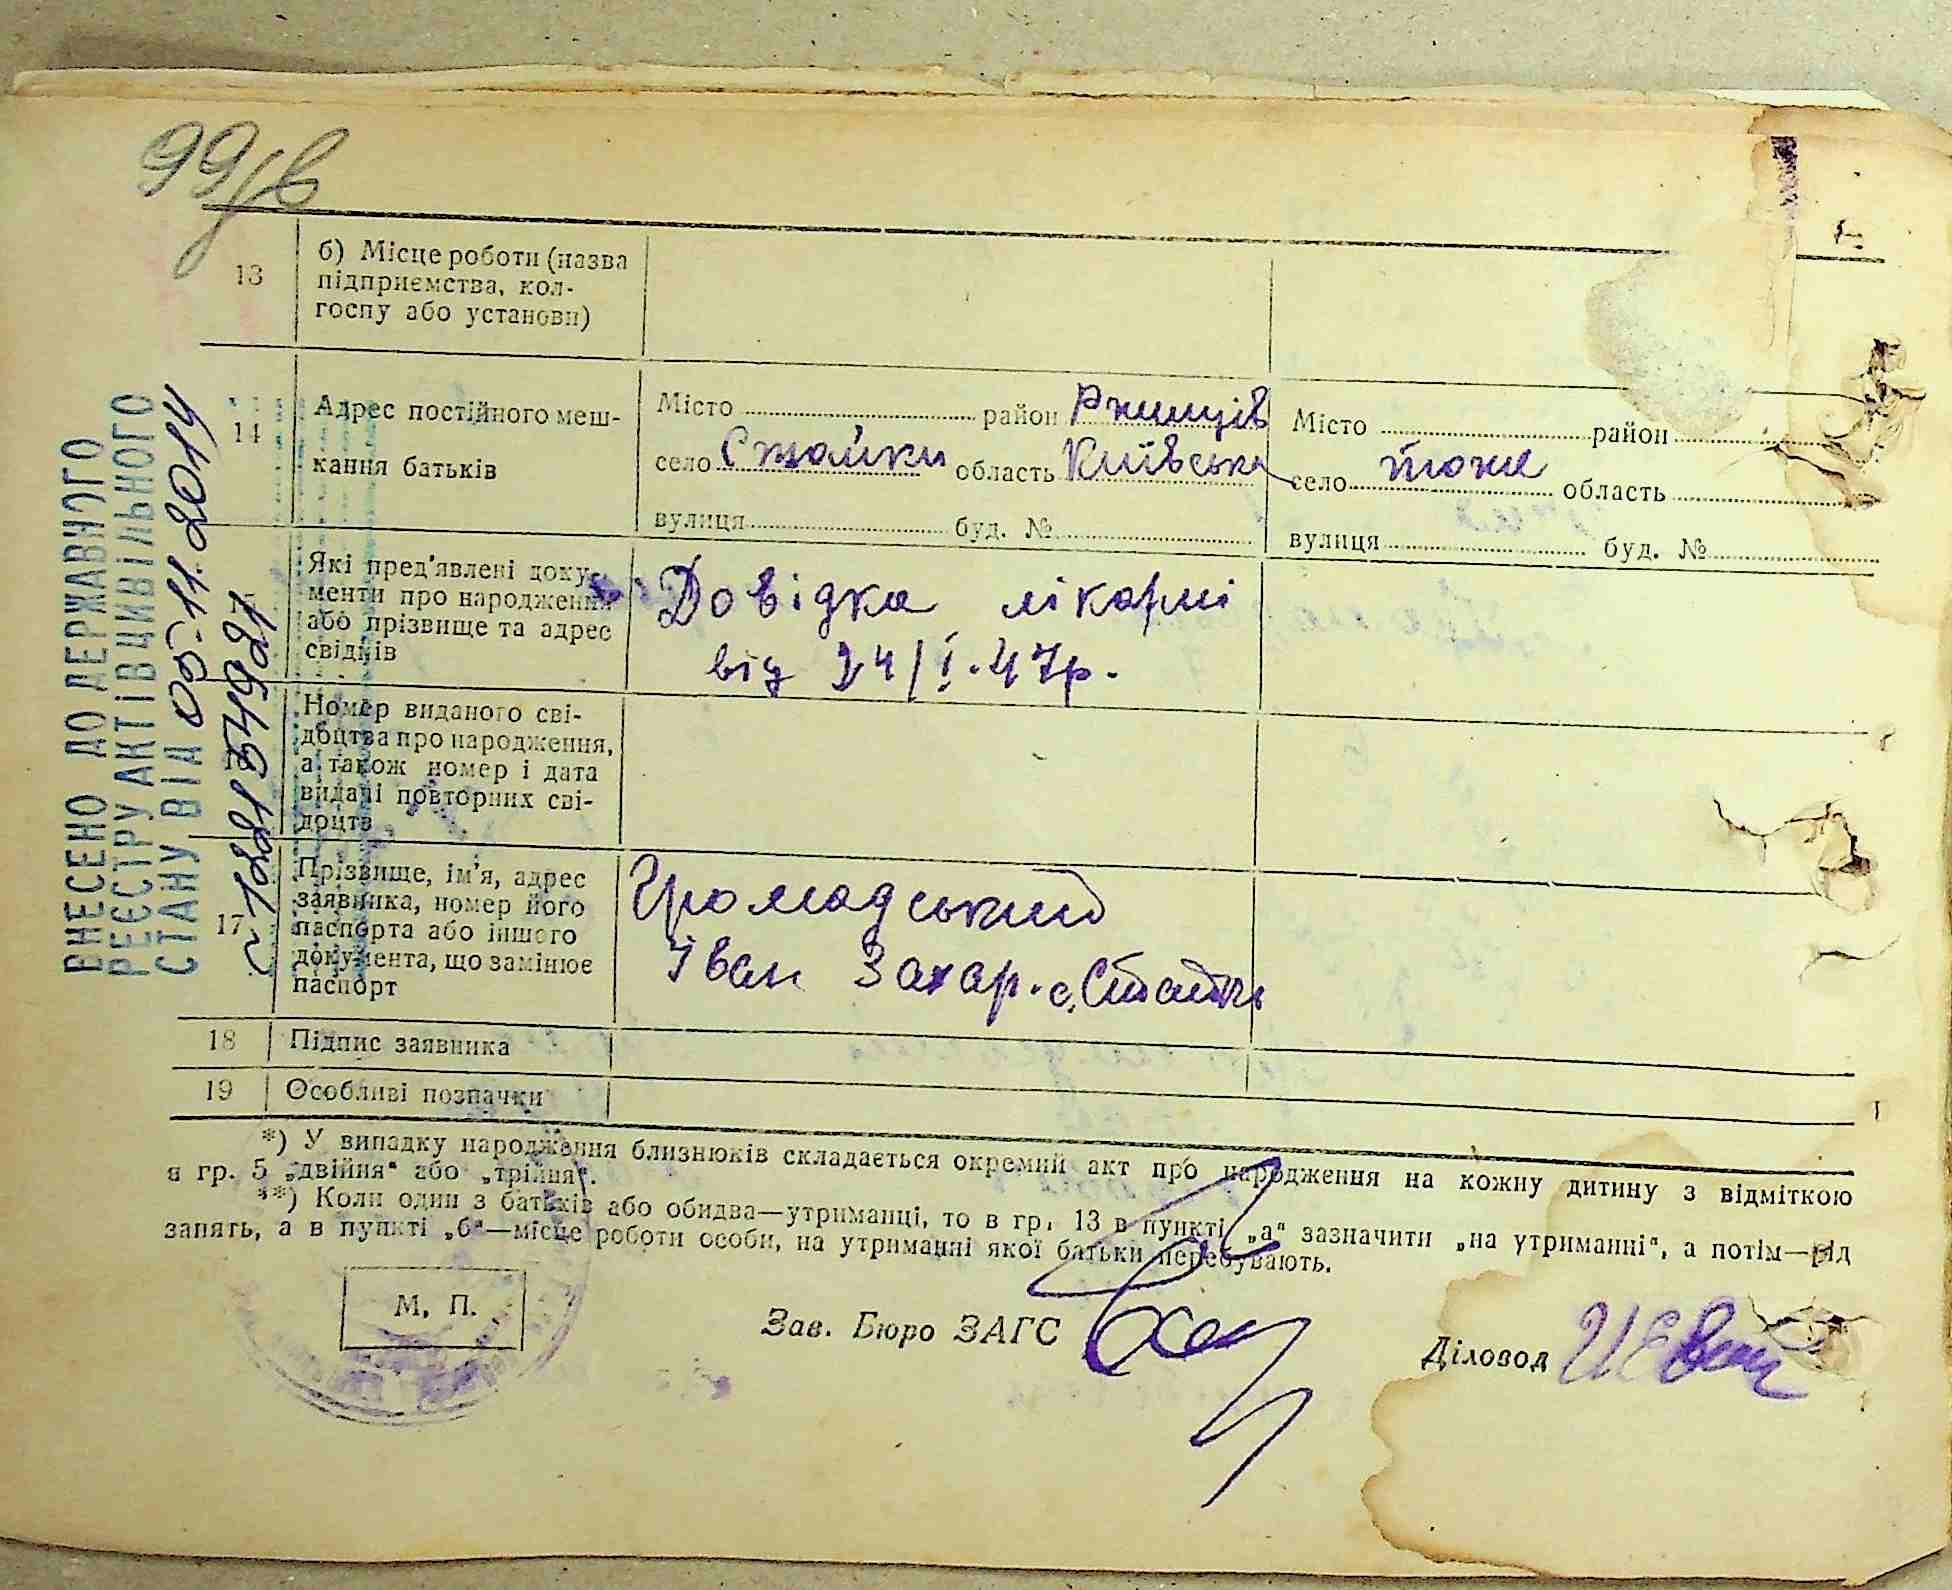 99/в
13
б) Місце роботи (назва
підприємства, кол-
госпу або установи)
14
Адрес постійного меш-
кання батьків
Місто район Ржищів
село Стайки область Київська
вулиця буд. №
Місто район
село тоже область
вулиця буд. №
Які пред'явлені доку-
менти про народження
або прізвище та адрес
свідків
Довідка лікарні
від 24/I.47р.
16
Номер виданого сві-
доцтва про народження,
а також номер і дата
видачі повторних сві-
доцтв
17
Прізвище, ім'я, адрес
заявника, номер його
паспорта або іншого
документа, що замінює
паспорт
Громадський
Іван Захар. с. Стайки
18 Підпис заявника
19 Особливі позначки
*) У випадку народження близнюків складається окремий акт про народження на кожну дитину з відміткою
в гр. 5 „двійня“ або „трійня“.
**) Коли один з батьків або обидва—утриманці, то в гр. 13 в пункті „а“ зазначити „на утриманні“, а потім—рід
занять, а в пункті „б“—місце роботи особи, на утриманні якої батьки перебувають.
М. П.
Зав. Бюро ЗАГС
Діловод
ВНЕСЕНО ДО ДЕРЖАВНОГО
РЕЄСТРУ АКТІВ ЦИВІЛЬНОГО
СТАНУ ВІД 05.11.2014